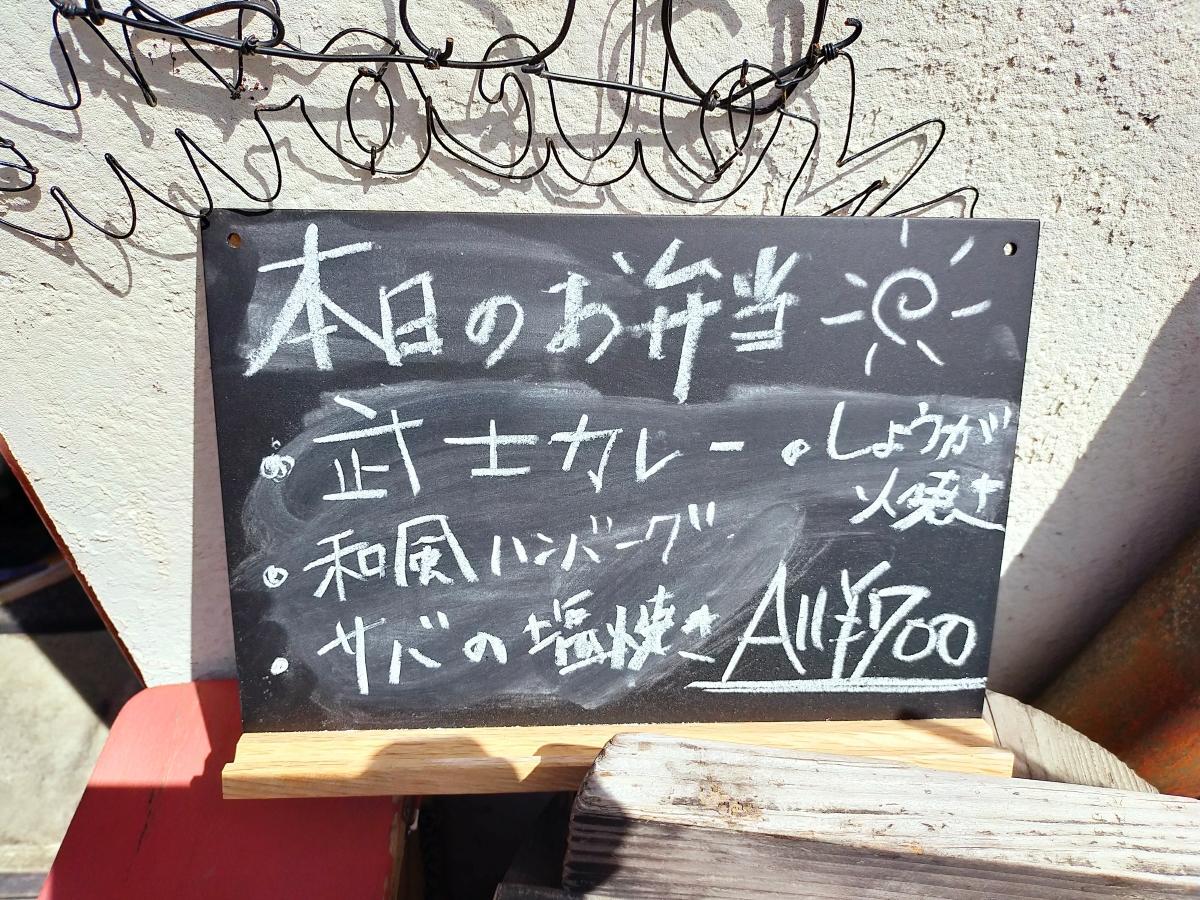 本日のお弁当
・武士カレー
・しょうが焼き
・和風ハンバーグ
・サバの塩焼き
All¥700